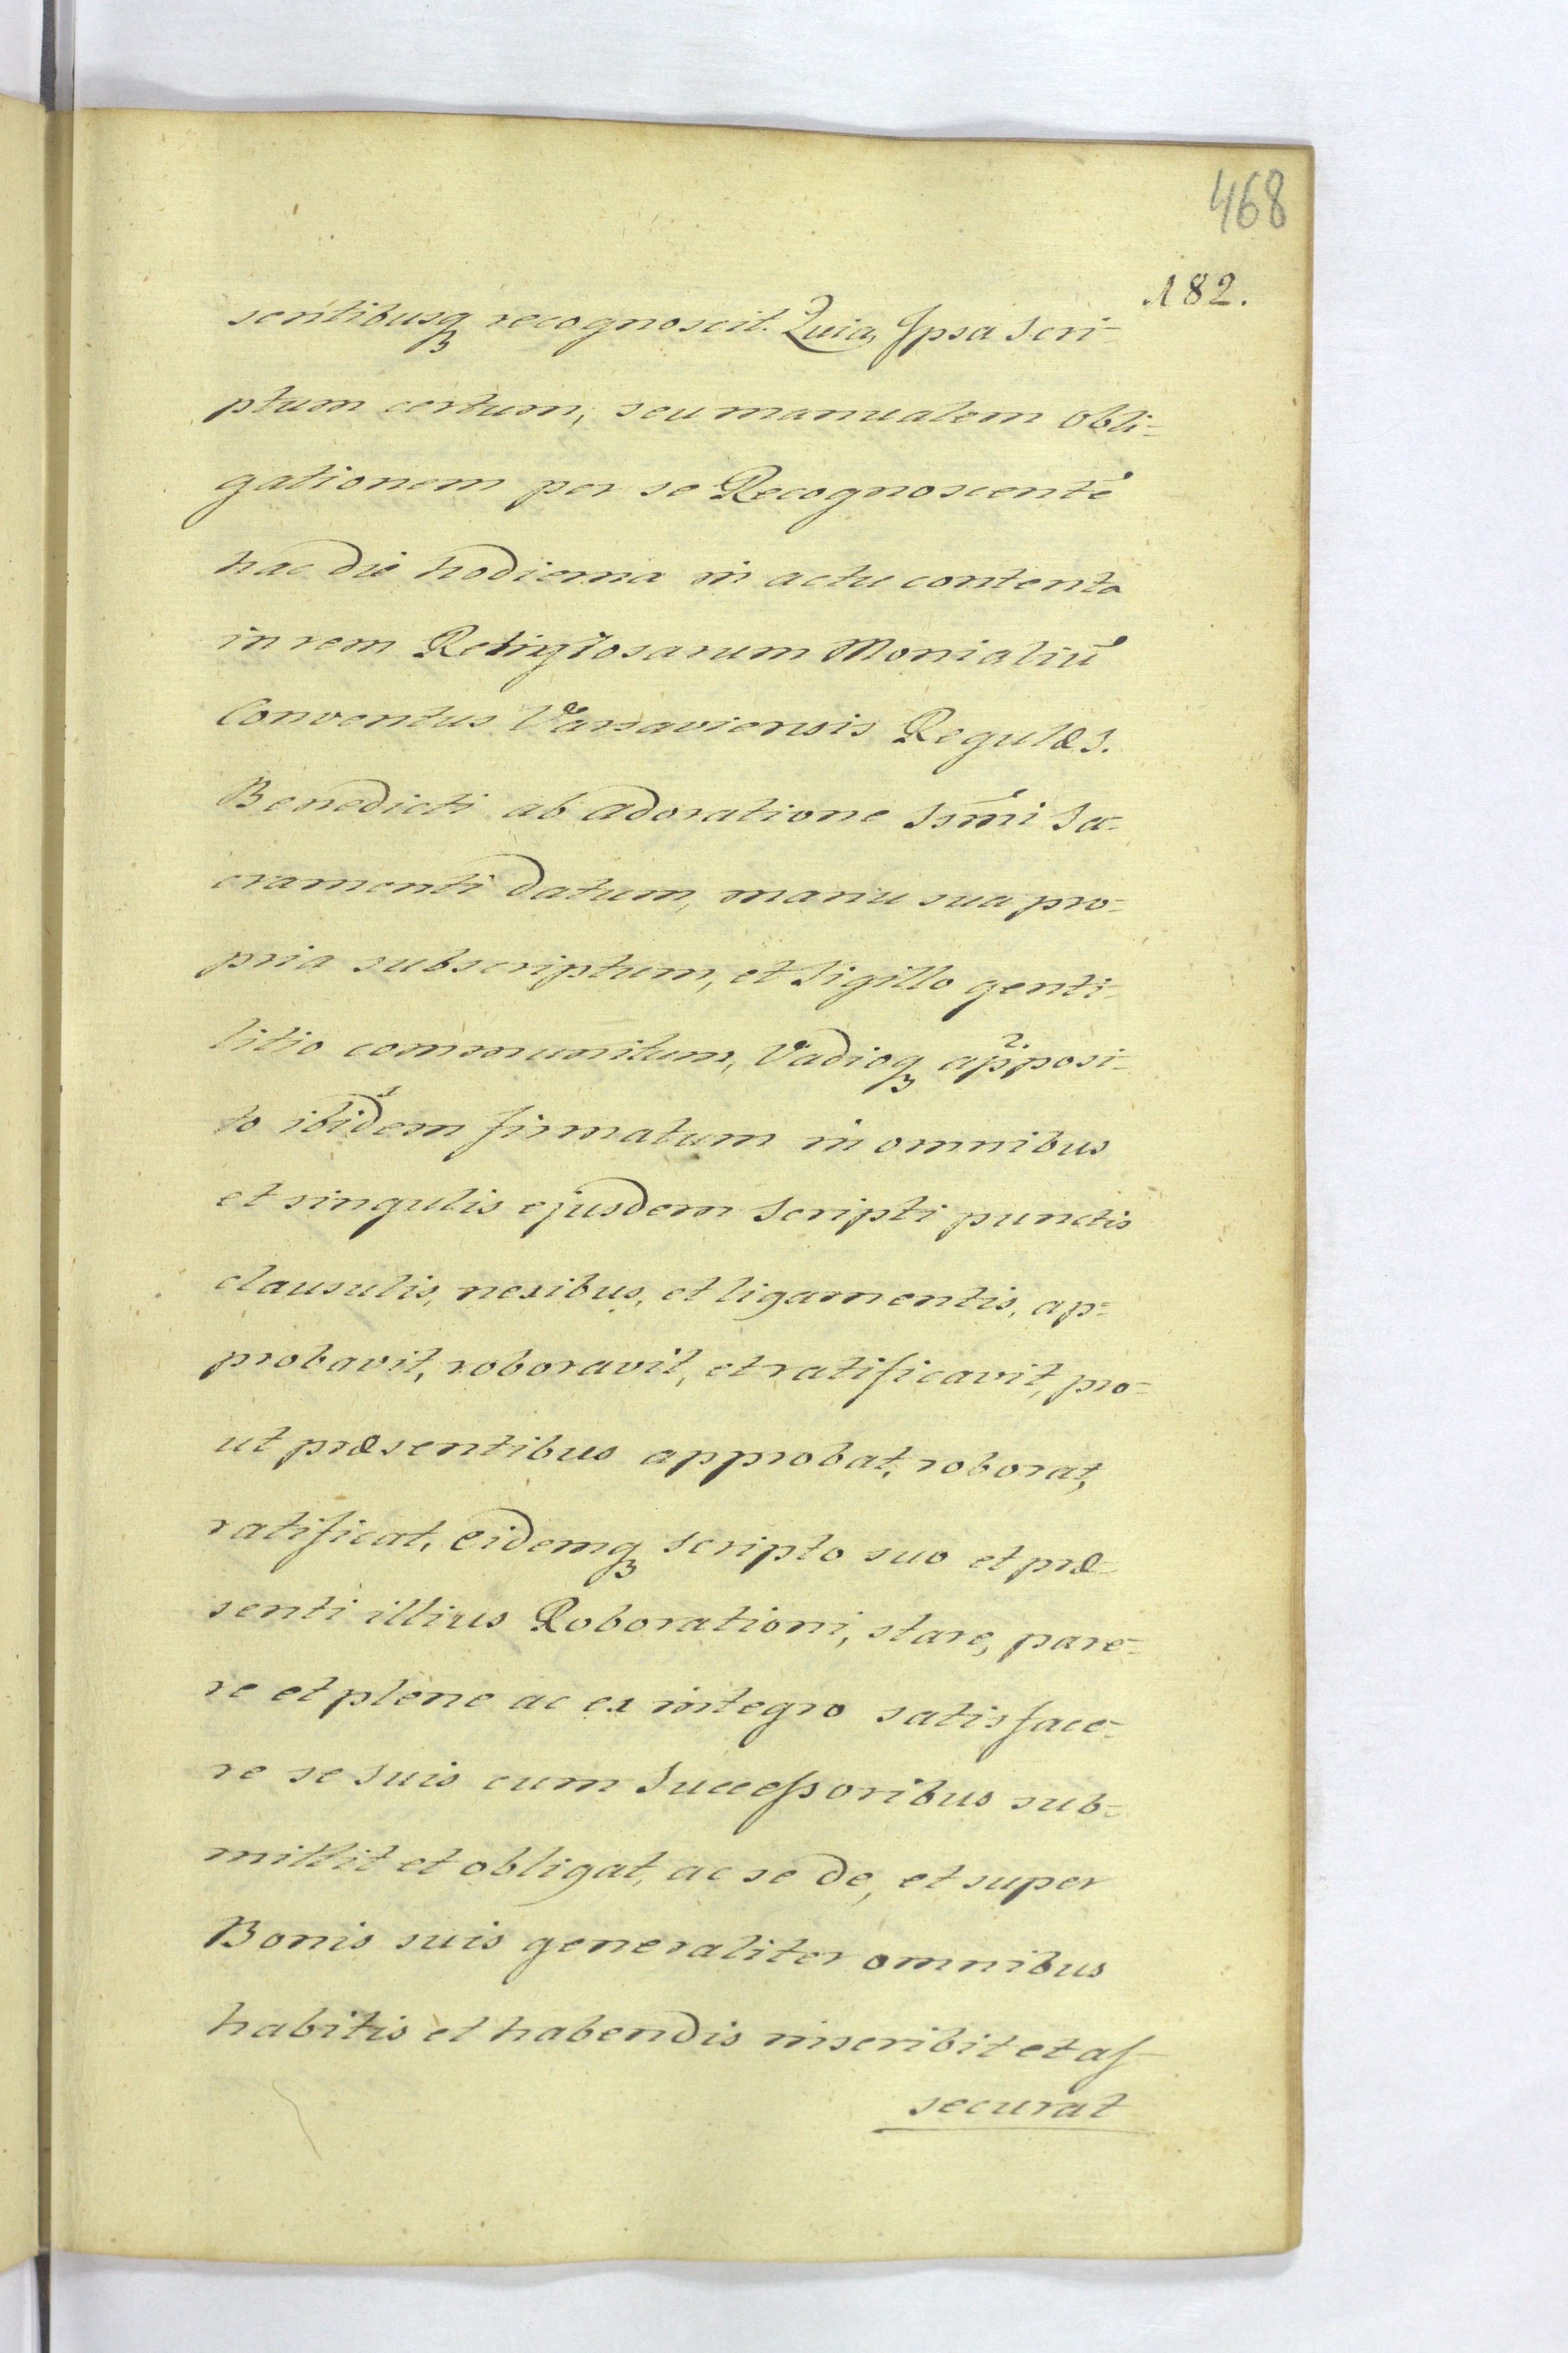 468
182.
sentibusqꝫ recognoscit. Quia, Ipsa Scri-
ptum certum, seu manualem Obli-
gationem per se Recognoscentē
hac die hodierna in actu contenta
in rem Religiosarum Monialiū
Conventus Varsaviensis Regulæ S.
Benedicti ab adoratione Ssm̄i Sa-
cramenti datum, manu sua pro-
pria subscriptum, et Sigillo genti-
litio communitum, Vadioqꝫ apposi-
to ibidem firmatum in omnibus
et singulis ejusdem Scripti punctis
clausulis, nexibus, et ligamentis, ap-
probavit, roboravit, et ratificavit, pro-
ut præsentibus approbat, roborat,
ratificat, eidemqꝫ scripto suo et præ-
senti illius Roborationi, stare, pare-
re et plene ac ex integro satisface-
re se suis cum Successoribus sub-
mittit et obligat, ac se de, et super
Bonis suis generaliter omnibus
habitis et habendis inscribit et as-
securat